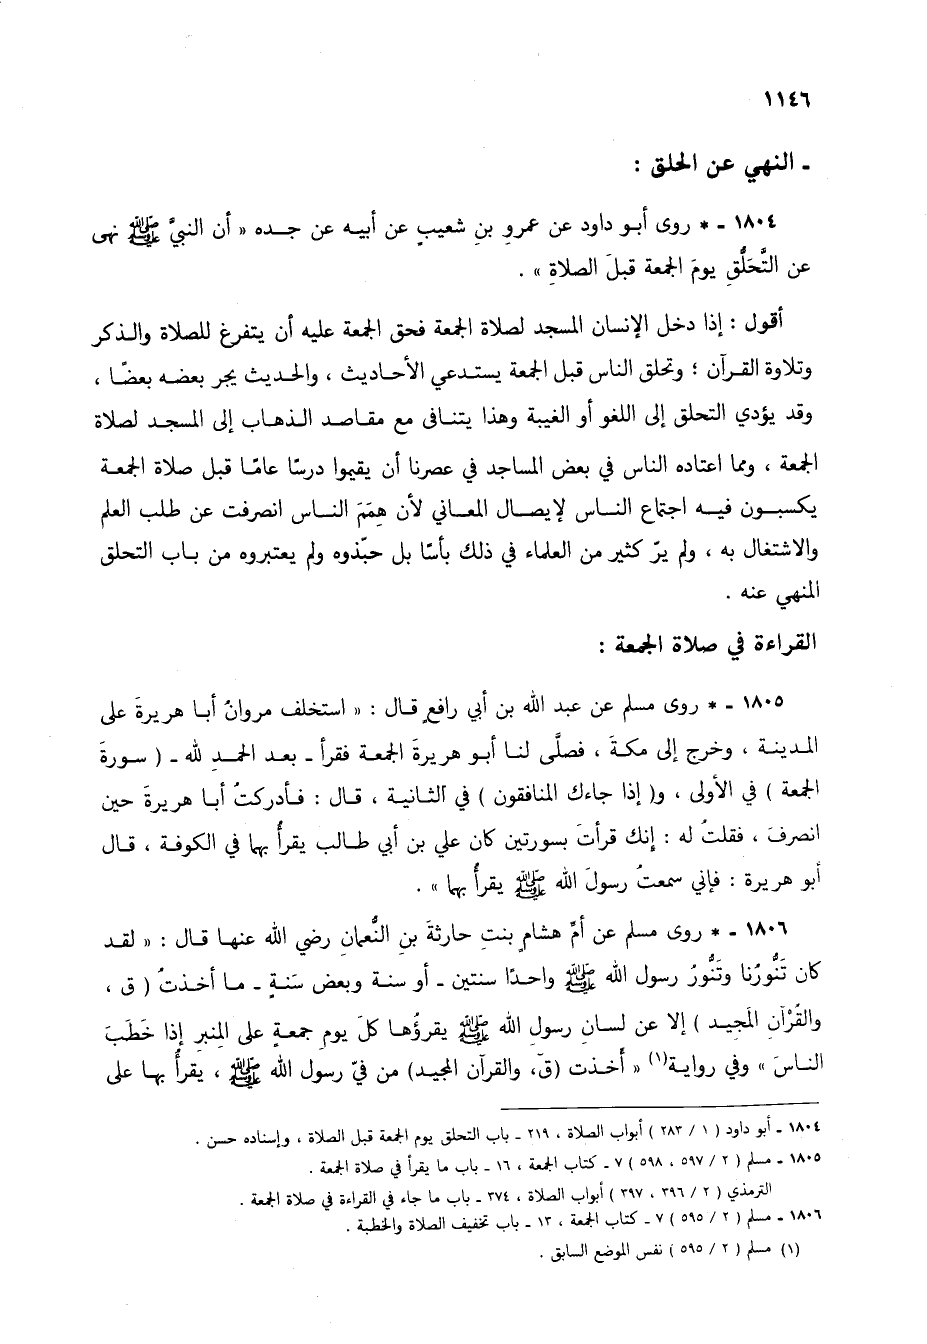 ١١٤٦
ـ النهي عن الحلق :
١٨٠٤ ـ * روى أبـو داود عن عمروِ بنِ شعيبٍ عن أبيـه عن جـده « أن النبيَّ ﷺ نهى
عن التَّحَلُّقِ يومَ الجمعة قبلَ الصلاةِ » .
أقول : إذا دخل الإنسان المسجد لصلاة الجمعة فحق الجمعة عليه أن يتفرغ للصلاة والـذكر
وتلاوة القـرآن ؛ وتحلق الناس قبل الجمعة يستـدعي الأحـاديث ، والحديث يجر بعضـه بعضًـا ،
وقد يؤدي التحلق إلى اللغو أو الغيبة وهذا يتنـافى مع مقـاصد الـذهـاب إلى المسجـد لصلاة
الجمعة ، ومما اعتاده الناس في بعض المساجد في عصرنا أن يقيموا درسًا عامًـا قبل صلاة الجمعـة
يكسبـون فيـه اجتماع النـاس لإيصـال المعـاني لأن هِمَمَ النـاس انصرفت عن طلب العلم
والاشتغال به ، ولم يرَ كثير من العلماء في ذلك بأسًا بل حبّذوه ولم يعتبروه من بـاب التحلق
المنهي عنه .
القراءة في صلاة الجمعة :
١٨٠٥ ـ * روى مسلم عن عبد الله بن أبي رافعٍ قـال : « استخلف مروانُ أبـا هريرةَ على
المدينـة ، وخرج إلى مكـةَ ، فصلَّى لنـا أبـو هريرةَ الجمعةَ فقرأ ـ بعـد الحمـدِ لله ـ ( سـورةَ
الجمعة ) في الأولى ، و( إذا جاءك المنافقون ) في الثانيـة ، قال : فـأدركتُ أبـا هريرةَ حين
انصرفَ ، فقلتُ له : إنك قرأتَ بسورتين كان علي بن أبي طـالب يقرأُ بهما في الكوفـة ، قـال
أبو هريرة : فإني سمعتُ رسولَ الله ﷺ يقرأُ بهما » .
١٨٠٦ ـ * روى مسلم عن أمِّ هشامٍ بنتِ حارثةَ بنِ النُّعمانِ رضي الله عنهـا قـال : « لقـد
كان تَنُّورُنا وتَنُّورُ رسول الله ﷺ واحدًا سنتين ـ أو سنة وبعض سَنةٍ ـ مـا أخـذتُ ( ق ،
والقُرْآنِ المَجيـد ) إلا عن لسـانِ رسولِ الله ﷺ يقرؤُهـا كلَّ يومِ جمعةٍ على المنبر إذا خَطَبَ
الناسَ » وفي روايـة(١) « أخـذت (قَ، والقرآن المجيـد) من فيّ رسول الله ﷺ ، يقرأُ بهـا على
١٨٠٤ ـ أبو داود ( ١ / ٢٨٣ ) أبواب الصلاة ، ٢١٩ ـ باب التحلق يوم الجمعة قبل الصلاة ، وإسناده حسن .
١٨٠٥ ـ مسلم ( ٢ / ٥٩٧ ، ٥٩٨ ) ٧ ـ كتاب الجمعة ، ١٦ ـ باب ما يقرأ في صلاة الجمعة .
الترمذي ( ٢ / ٣٩٦ ، ٣٩٧ ) أبواب الصلاة ، ٣٧٤ ـ باب ما جاء في القراءة في صلاة الجمعة .
١٨٠٦ ـ مسلم ( ٢ / ٥٩٥ ) ٧ ـ كتاب الجمعة ، ١٣ ـ باب تخفيف الصلاة والخطبة .
(١) مسلم ( ٢ / ٥٩٥ ) نفس الموضع السابق .